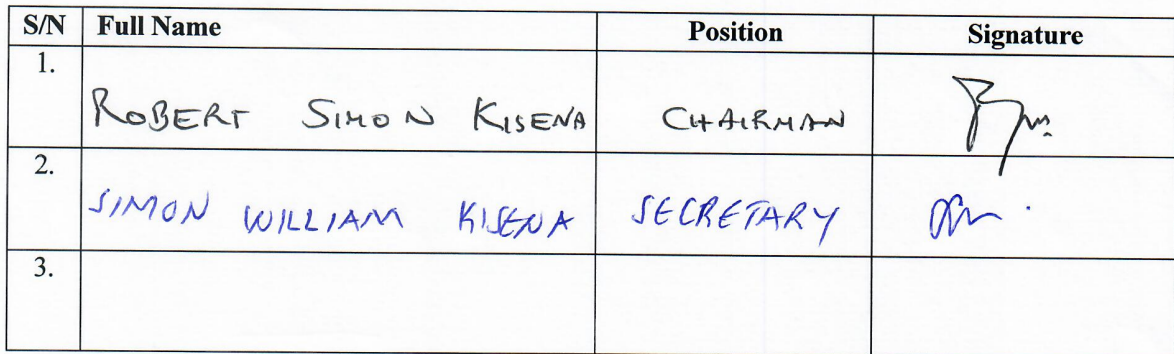 S/N Full Name Position Signature
1. ROBERT SIMON KISENA CHAIRMAN
2. SIMON WILLIAM KISENA SECRETARY
3.